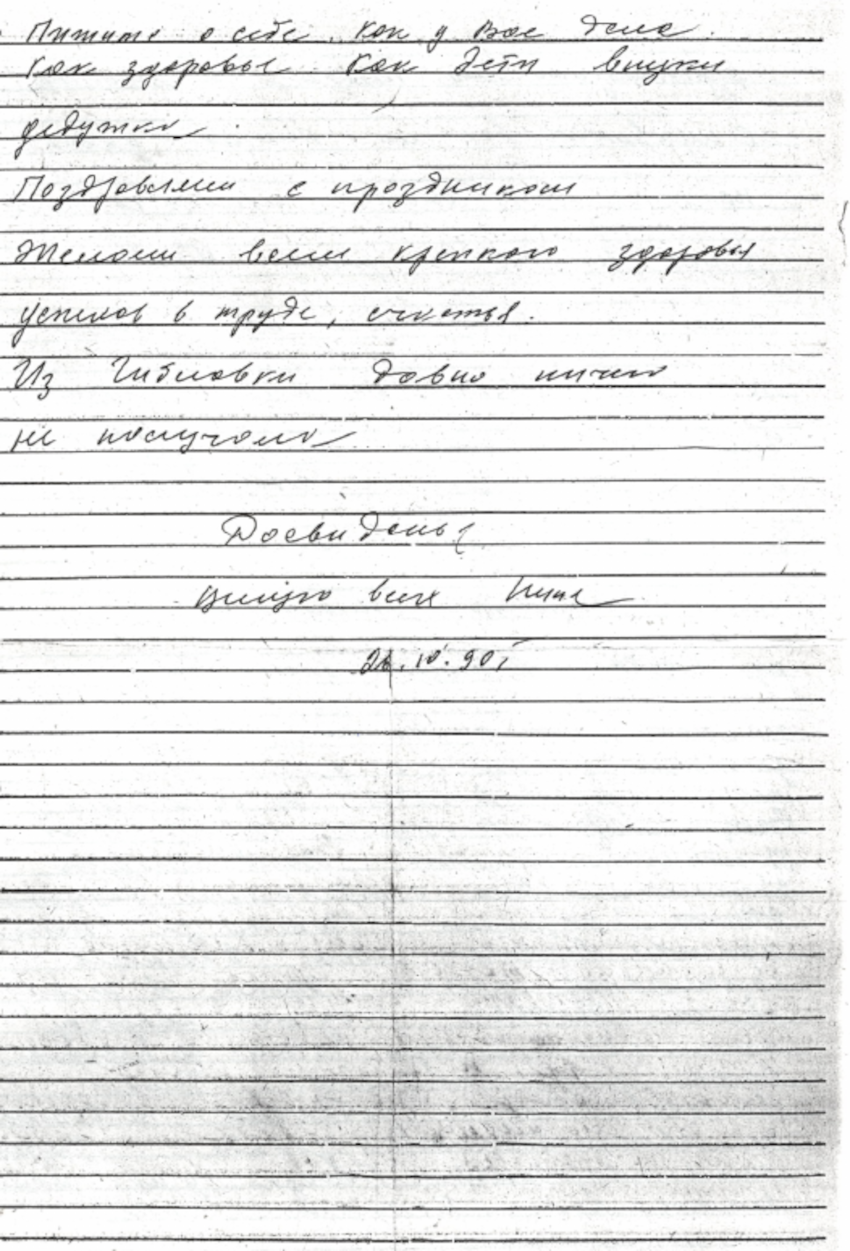 Пишите о себе. Как у Вас дела.
Как здоровье Как дети внуки
дедушка
Поздравляем с праздником
Желаем всем крепкого здоровья
успехов в труде, счастья.
Из давно ничего
не получала
Досвиданья
Целую всех Нина
10. 90г